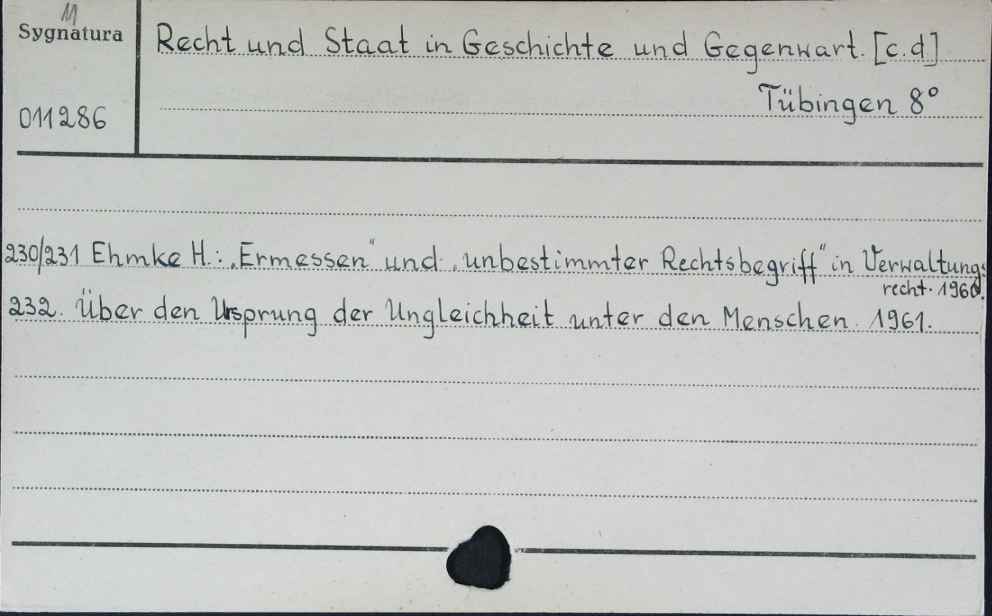 M
Sygnatura
011286
Recht und Staat in Geschichte und Gegenwart. [c.d]
Tübingen 8°
230/231 Ehmke H.: „Ermessen" und „unbestimmter Rechtsbegriff" in Verwaltungs
recht. 1960.
232. Über den Ursprung der Ungleichheit unter den Menschen. 1961.